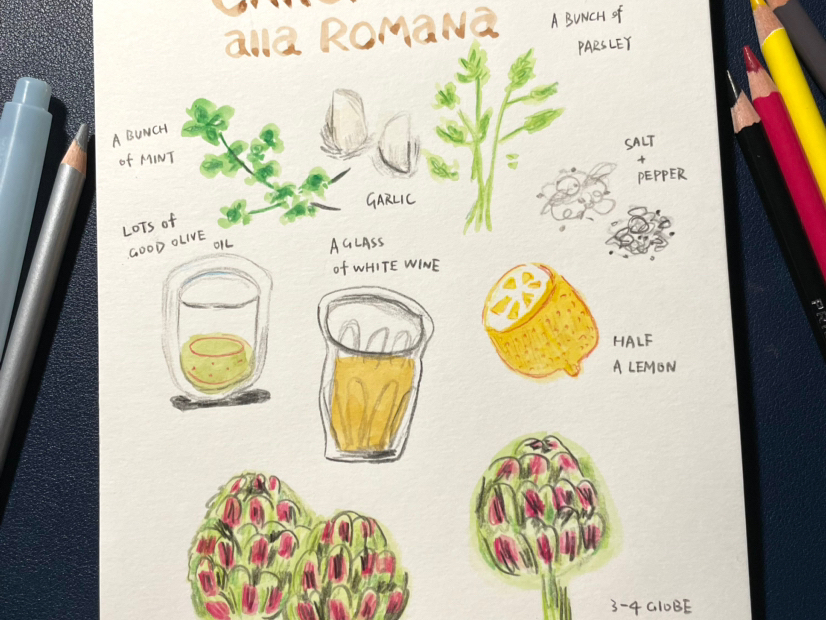 alla ROMANA
A BUNCH of
PARSLEY
A BUNCH
of MINT
GARLIC
SALT
+
PEPPER
LOTS of
GOOD OLIVE OIL
A GLASS
of WHITE WINE
HALF
A LEMON
3-4 GLOBE